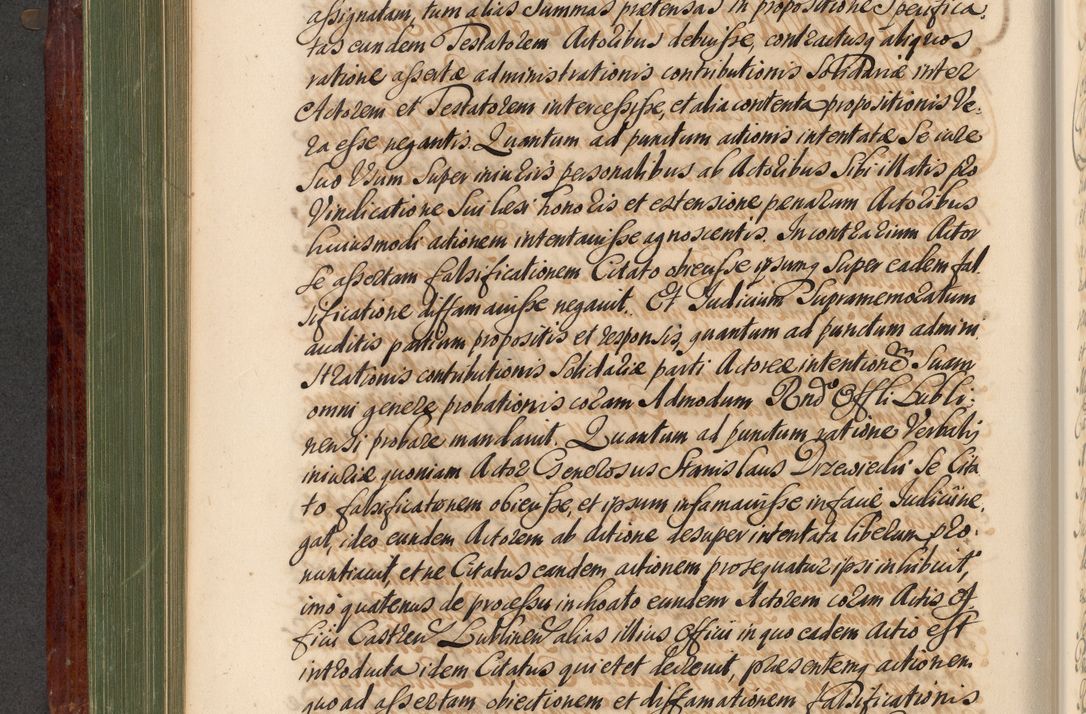 assignatam, tum alias Summas prætensas in propositione Specifica,
tas eundem Testatorem Actoribus debuisse, contractusq aliquos
ratione assertæ administrationis contributionis Solidariæ inter
Actorem et Testatorem intercessisse, et alia contenta propositionis Ve,
ra esse negantis. Quantum ad punctum actionis intentatæ Se iure
Suo Usum Super iniuriis personalibus ab Actoribus Sibi illatis pro
Vindicatione Sui læsi honoris et extensione penarum Actoribus
huiusmodi actionem intentavisse agnoscentis. In contrarium Actor
Se assertam falsificationem Citato obiecisse ipsumq Super eadem fal
sificatione diffamavisse negavit. Et Iudicium Supramemoratum
auditis partium propositis et responsis, quantum ad punctum admini
strationis contributionis Solidariæ parti Actoreæ intentionem Suam
omni genere probationis coram Admodum Rndo Offli Lubli,
nensi probare mandavit. Quantum ad punctum ratione Verbalis
iniuriæ quoniam Actor Generosus Stanislaus Drzewiecki Se Cita
to falsificationem obiecisse, et ipsum infamavisse in facie Iudicii ne,
gat, ideo eundem Actorem ab actione desuper intentata liberum pro,
nuntiavit, et ne Citatus eandem actionem prosequatur ipsi inhibuit,
imo quatenus de processu inchoato eundem Actorem coram Actis Of
ficii Castren Lublinen alias illius Officii in quo eadem Actio est
introducta idem Citatus quietet decrevit, præsentemq actionem
quo ad assertam obiectionem et diffamationem falsificationis